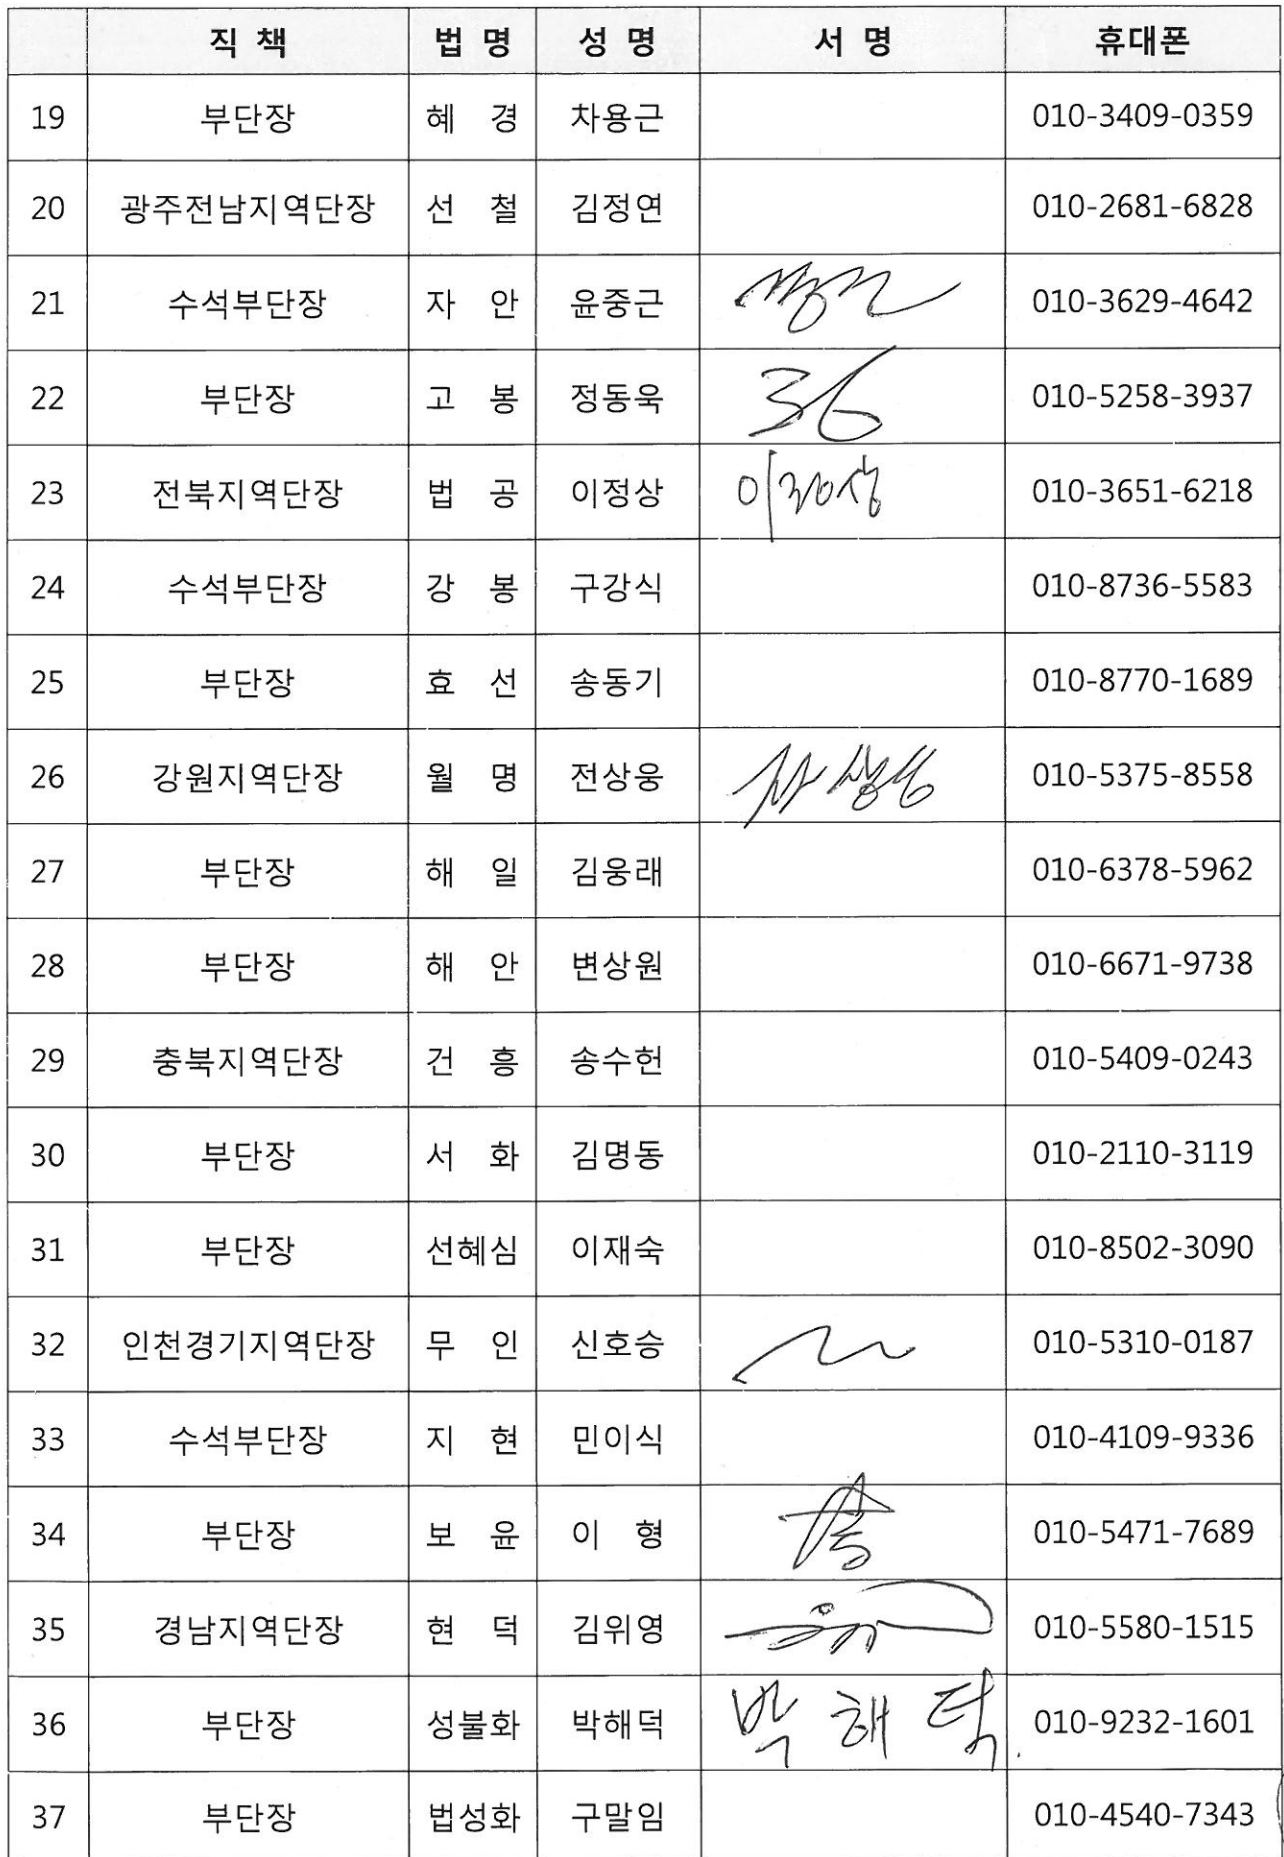 직 책 법 명 성 명 서 명 휴대폰
19 부단장 혜 경 차용근 010-3409-0359
20 광주전남지역단장 선 철 김정연 010-2681-6828
21 수석부단장 자 안 윤중근 010-3629-4642
22 부단장 고 봉 정동욱 010-5258-3937
23 전북지역단장 법 공 이정상 이정상 010-3651-6218
24 수석부단장 강 봉 구강식 010-8736-5583
25 부단장 효 선 송동기 010-8770-1689
26 강원지역단장 월 명 전상웅 010-5375-8558
27 부단장 해 일 김웅래 010-6378-5962
28 부단장 해 안 변상원 010-6671-9738
29 충북지역단장 건 흥 송수헌 010-5409-0243
30 부단장 서 화 김명동 010-2110-3119
31 부단장 선혜심 이재숙 010-8502-3090
32 인천경기지역단장 무 인 신호승 010-5310-0187
33 수석부단장 지 현 민이식 010-4109-9336
34 부단장 보 윤 이 형 010-5471-7689
35 경남지역단장 현 덕 김위영 010-5580-1515
36 부단장 성불화 박해덕 박 해 덕 010-9232-1601
37 부단장 법성화 구말임 010-4540-7343